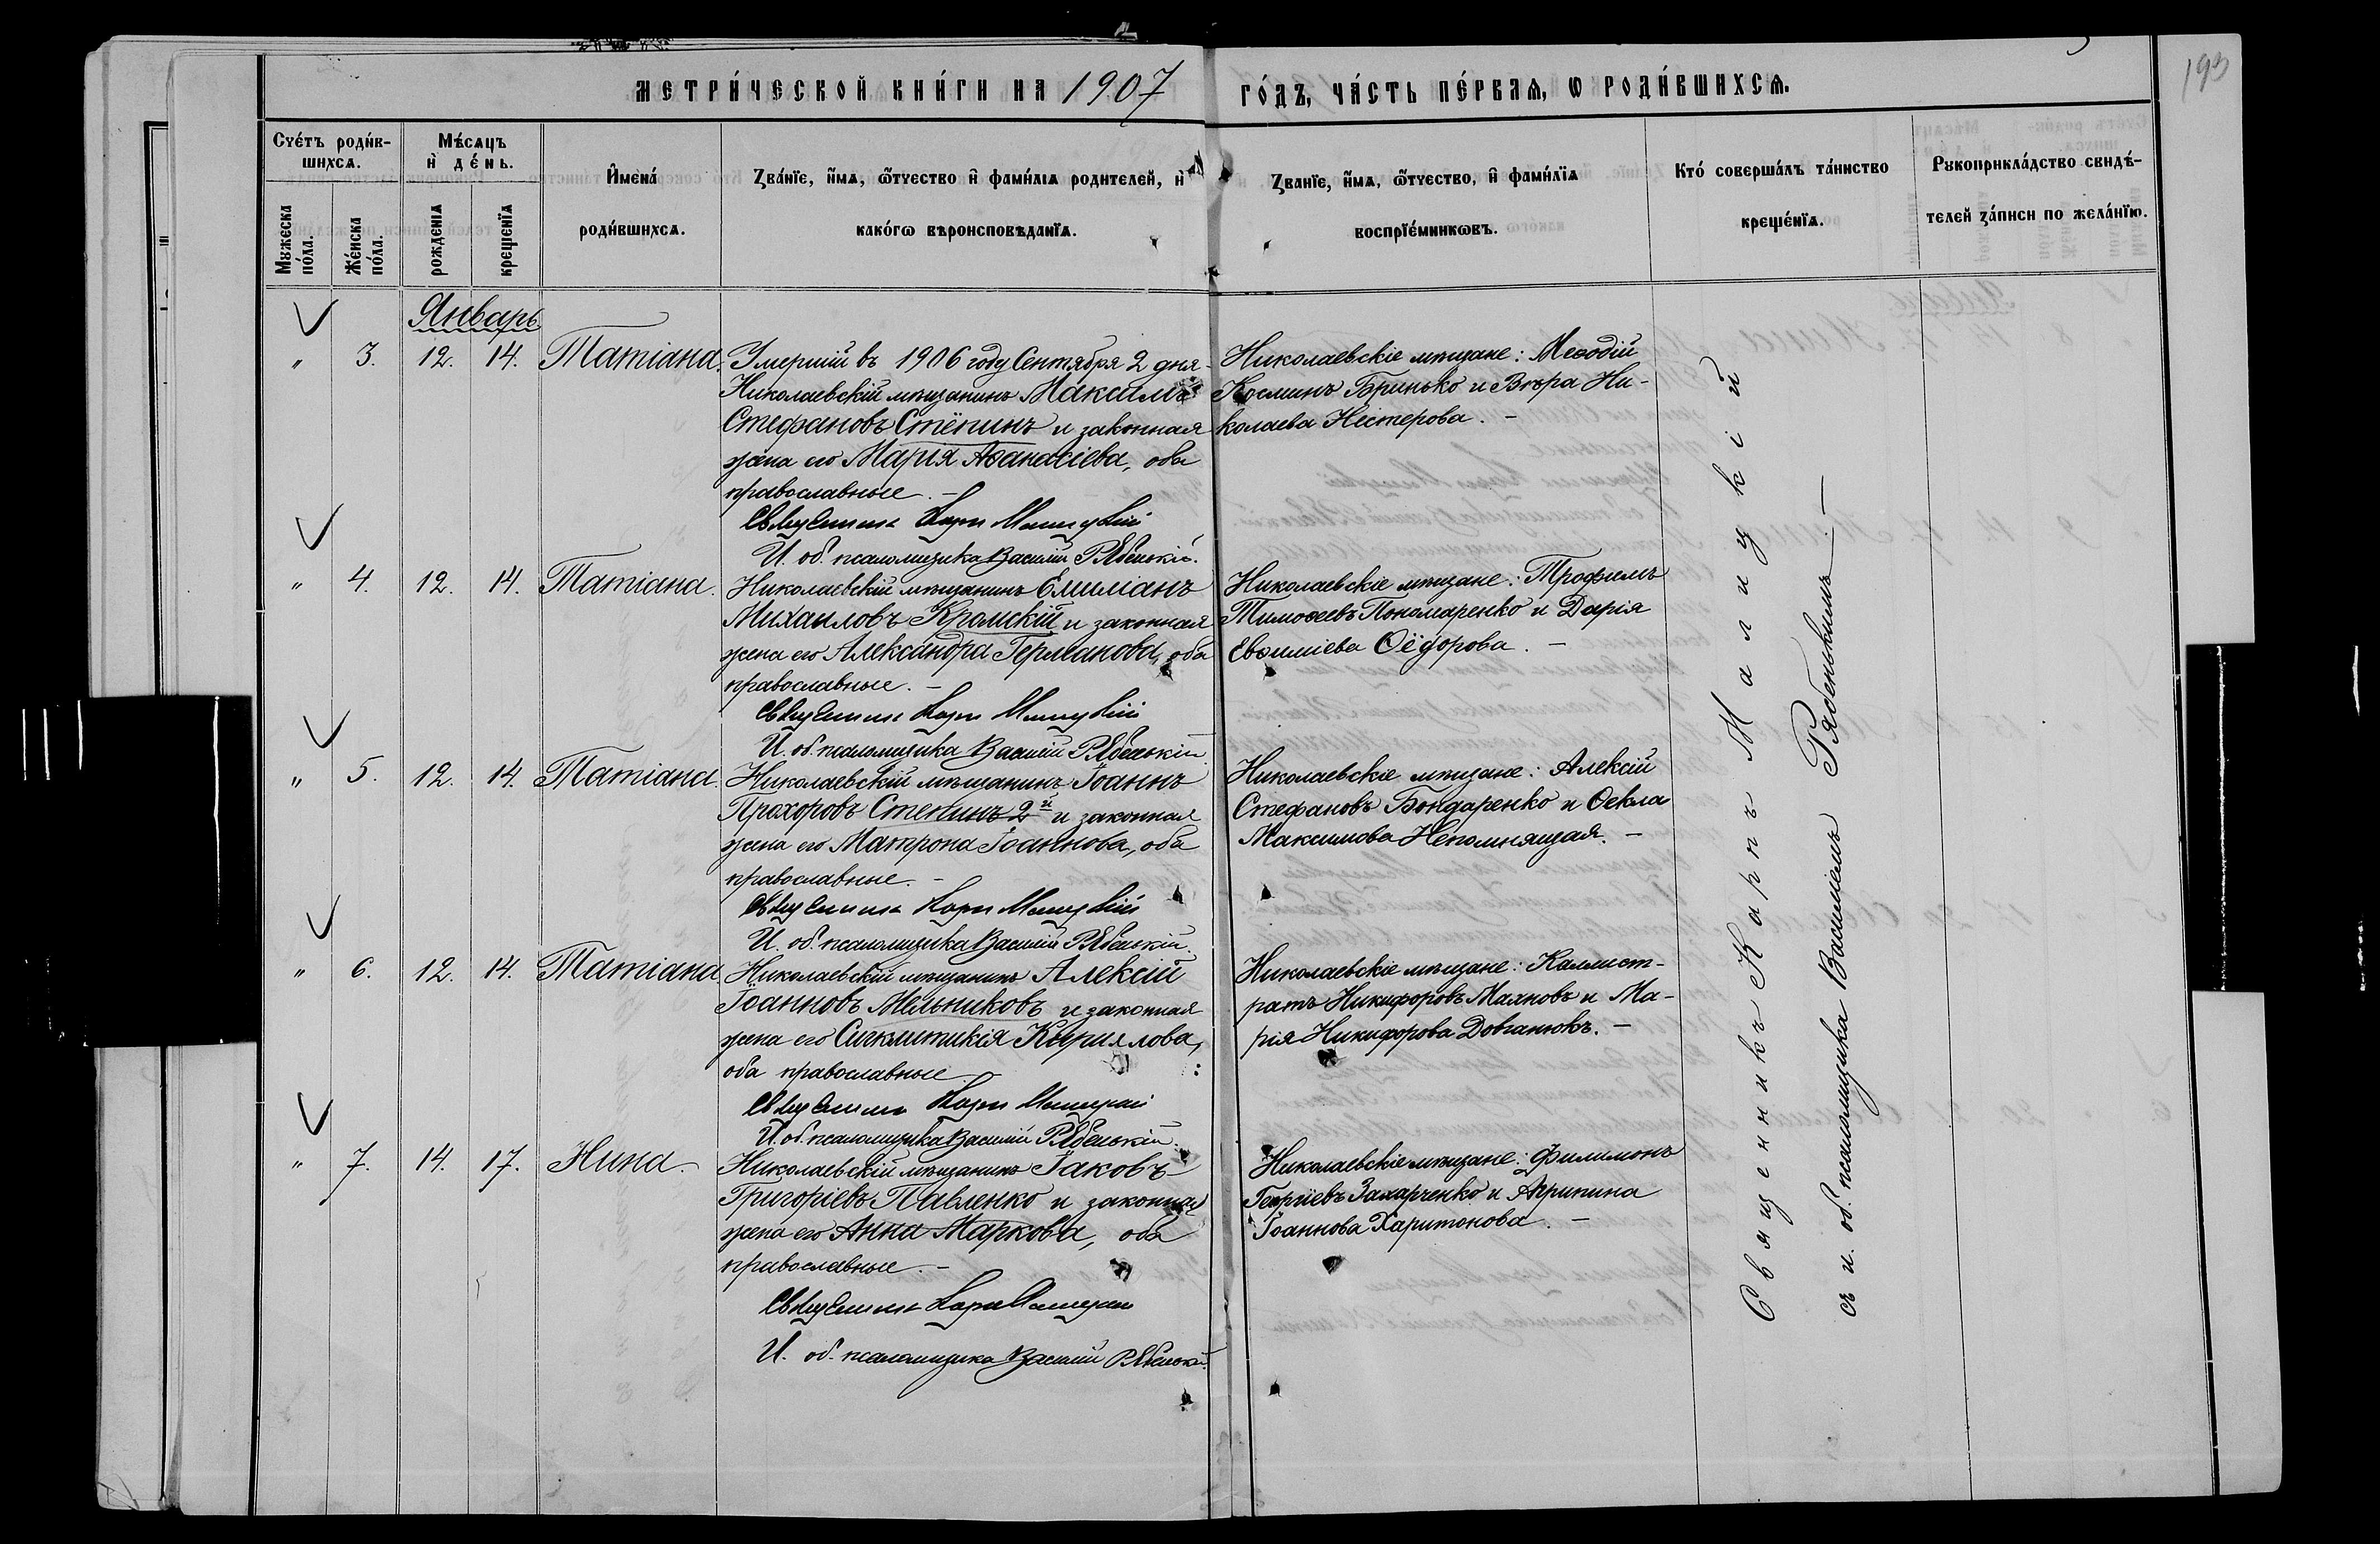 193
МЕТРИ́ЧЕСКОЙ КНИ́ГИ НА 1907 ГО́ДЪ, ЧА́СТЬ ПЕ́РВАѦ, Ѡ РОДИ́ВШИХСѦ.
Сче́тъ роди́в-
шихсѧ.
Мꙋжеска по́ла.
Же́нска по́ла.
Мѣ́сѧцъ
и де́нь.
рожденїѧ
крещенїѧ
Имена́
роди́вшихсѧ.
Зва́нїе, и́мѧ, ѻ́тчество и фами́лїѧ родителей, и
како́гѡ вѣроисповѣданїѧ.
Званїе, и́мѧ, ѻ́тчество, и фами́лїѧ
воспрїе́мникѡвъ.
Кто́ соверша́лъ та́инство
креще́нїѧ.
Рꙋкоприкла́дство свидѣ́-
телей за́писи по жела́нїю.
Январь.
" 3. 12. 14. Татіана.
Умершій въ 1906 году Сентября 2 дня
Николаевскій мѣщанинъ Максимъ
Стефановъ Стёпинъ и законная
жена его Марія Аѳанасіева, оба
православные. –
Священникъ Карпъ Малицкій
И. об. псаломщика Василій Рябенькій.
Николаевскіе мѣщане: Меѳодій
Косминъ Бринько и Вѣра Ни-
колаева Нестерова. –
" 4. 12. 14. Татіана.
Николаевскій мѣщанинъ Емиліанъ
Михаиловъ Крамскій и законная
жена его Александра Германова, оба
православные. –
Священникъ Карпъ Малицкій
И. об. псаломщика Василій Рябенькій
Николаевскіе мѣщане: Трофимъ
Тимоѳеевъ Пономаренко и Дарія
Евѳиміева Ѳёдорова. –
" 5. 12. 14. Татіана.
Николаевскій мѣщанинъ Іоаннъ
Прохоровъ Степинъ 2й и законная
жена его Матрона Іоаннова, оба
православные. –
Священникъ Карпъ Малицкій
И. об. псаломщика Василій Рябенькій.
Николаевскіе мѣщане: Алексій
Стефановъ Бондаренко и Ѳекла
Максимова Непомнящая. –
" 6. 12. 14. Татіана
Николаевскій мѣщанинъ Алексій
Іоанновъ Мельниковъ и законная
жена его Сигклитикія Кириллова,
оба православные
Священникъ Карпъ Малицкій
И. об. псаломщика Василій Рябенькій.
Николаевскіе мѣщане: Каллист-
ратъ Никифоровъ Маяновъ и Ма-
рія Никифорова Довганюкъ. –
" 7. 14. 17. Нина. –
Николаевскій мѣщанинъ Іаковъ
Григоріевъ Павленко и законная
жена его Анна Маркова, оба
православные. –
Священникъ Карпъ Малицкій
И. об. псаломщика Василій Рябенькій.
Николаевскіе мѣщане: Филимонъ
Георгіевъ Захарченко и Агрипина
Іоаннова Харитонова. –
Священникъ Карпъ Малицкій
съ и. об. псаломщика Василіемъ Рябенькимъ. –